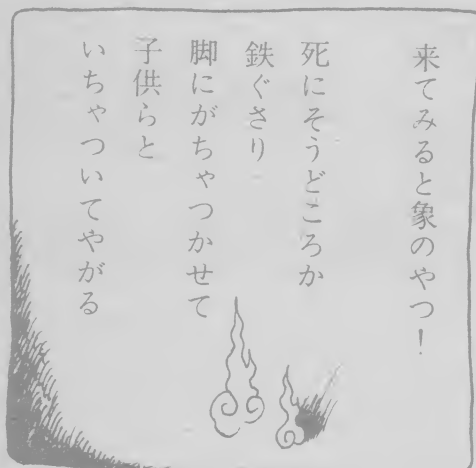 来てみると象のやつ！
死にそうどころか
鉄ぐさり
脚にがちゃつかせて
子供らと
いちゃついてやがる